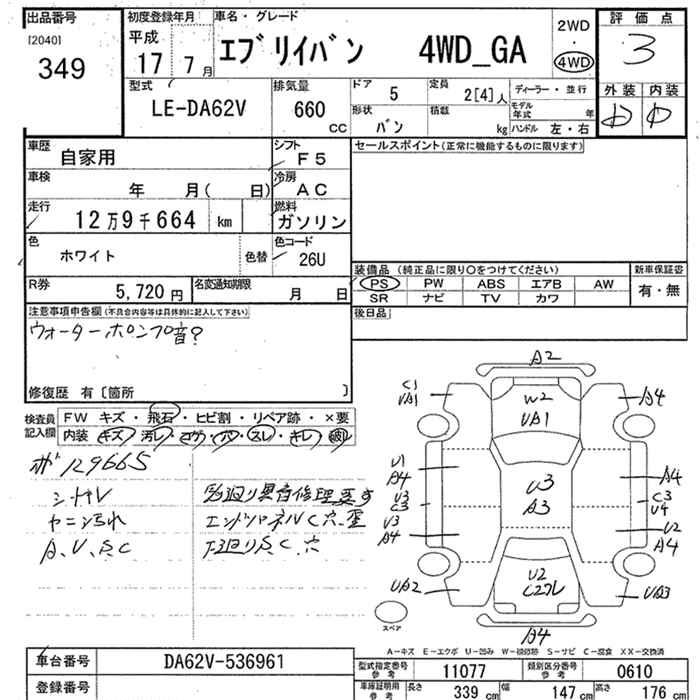 出品番号
[2040]
349
初度登録年月
平成
17 7月
車名・グレード
エブリイバン 4WD_GA
2WD
4WD
評価点
3
外装 内装
D D
型式
LE-DA62V
排気量
660 CC
ドア 5
定員 2[4]人
形状 バン
積載 kg
ディーラー・並行
モデル年式 年
ハンドル 左・右
車歴 自家用
シフト F5
車検 年 月( 日)
冷房 AC
走行 12万9千664 km
燃料 ガソリン
色 ホワイト
色替
色コード 26U
R券 5,720円
名変通知期限 月 日
セールスポイント(正常に機能するものに限ります)
装備品 (純正品に限り○をつけてください)
PS PW ABS エアB AW
SR ナビ TV カワ
新車保証書
有・無
後日品
注意事項申告欄(不具合内容等は具体的に記入して下さい)
ウォーターポンプ音?
修復歴 有〔箇所 〕
検査員記入欄
FW キズ・飛石・ヒビ割・リペア跡・×要
内装 キズ・汚レ・コゲ・穴・スレ・キレ・破レ
129665
A、U、S、C
エンドパネルC穴
下廻りS、C、穴
A2
C1
UA1
A4
W2
UA1
U1
A4
U3
C3
U3
A4
U3
A3
A4
C3
U4
U2
A4
UA2
U2
UA3
A4
スペア
A-キズ E-エクボ U-凹み W-補修跡 S-サビ C-腐食 XX-交換済
車台番号 DA62V-536961
登録番号
型式指定番号 参考 11077
類別区分番号 参考 0610
車庫証明用 参考 長さ 339 cm 幅 147 cm 高さ 176 cm